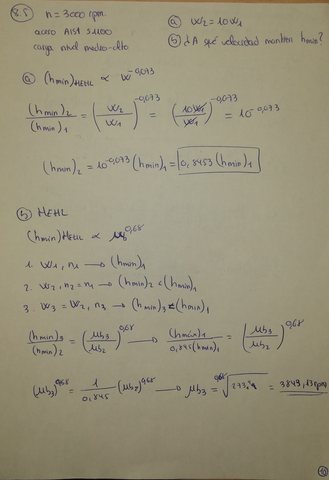 8.5 n = 3000 rpm
acero AISI 51100
carga nivel medio-alto
ⓐ w₂ = 10w₁
ⓑ ¿A qué velocidad mantiene hmin?
ⓐ (hmin)HEHL ∝ w^-0,073
(hmin)₂/(hmin)₁ = (w₂/w₁)^-0,073 = (10w₁/w₁)^-0,073 = 10^-0,073
(hmin)₂ = 10^-0,073 (hmin)₁ = 0,8453 (hmin)₁
ⓑ HEHL
(hmin)HEHL ∝ μb^0,68
1. w₁, n₁ → (hmin)₁
2. w₂, n₂ = n₁ → (hmin)₂ < (hmin)₁
3. w₃ = w₂, n₃ → (hmin)₃ = (hmin)₁
(hmin)₃/(hmin)₂ = (μb₃/μb₂)^0,68 → (hmin)₁/0,845(hmin)₁ = (μb₃/μb₂)^0,68
(μb₃)^0,68 = 1/0,845 (μb₂)^0,68 → μb₃ = = 3843,13 rpm